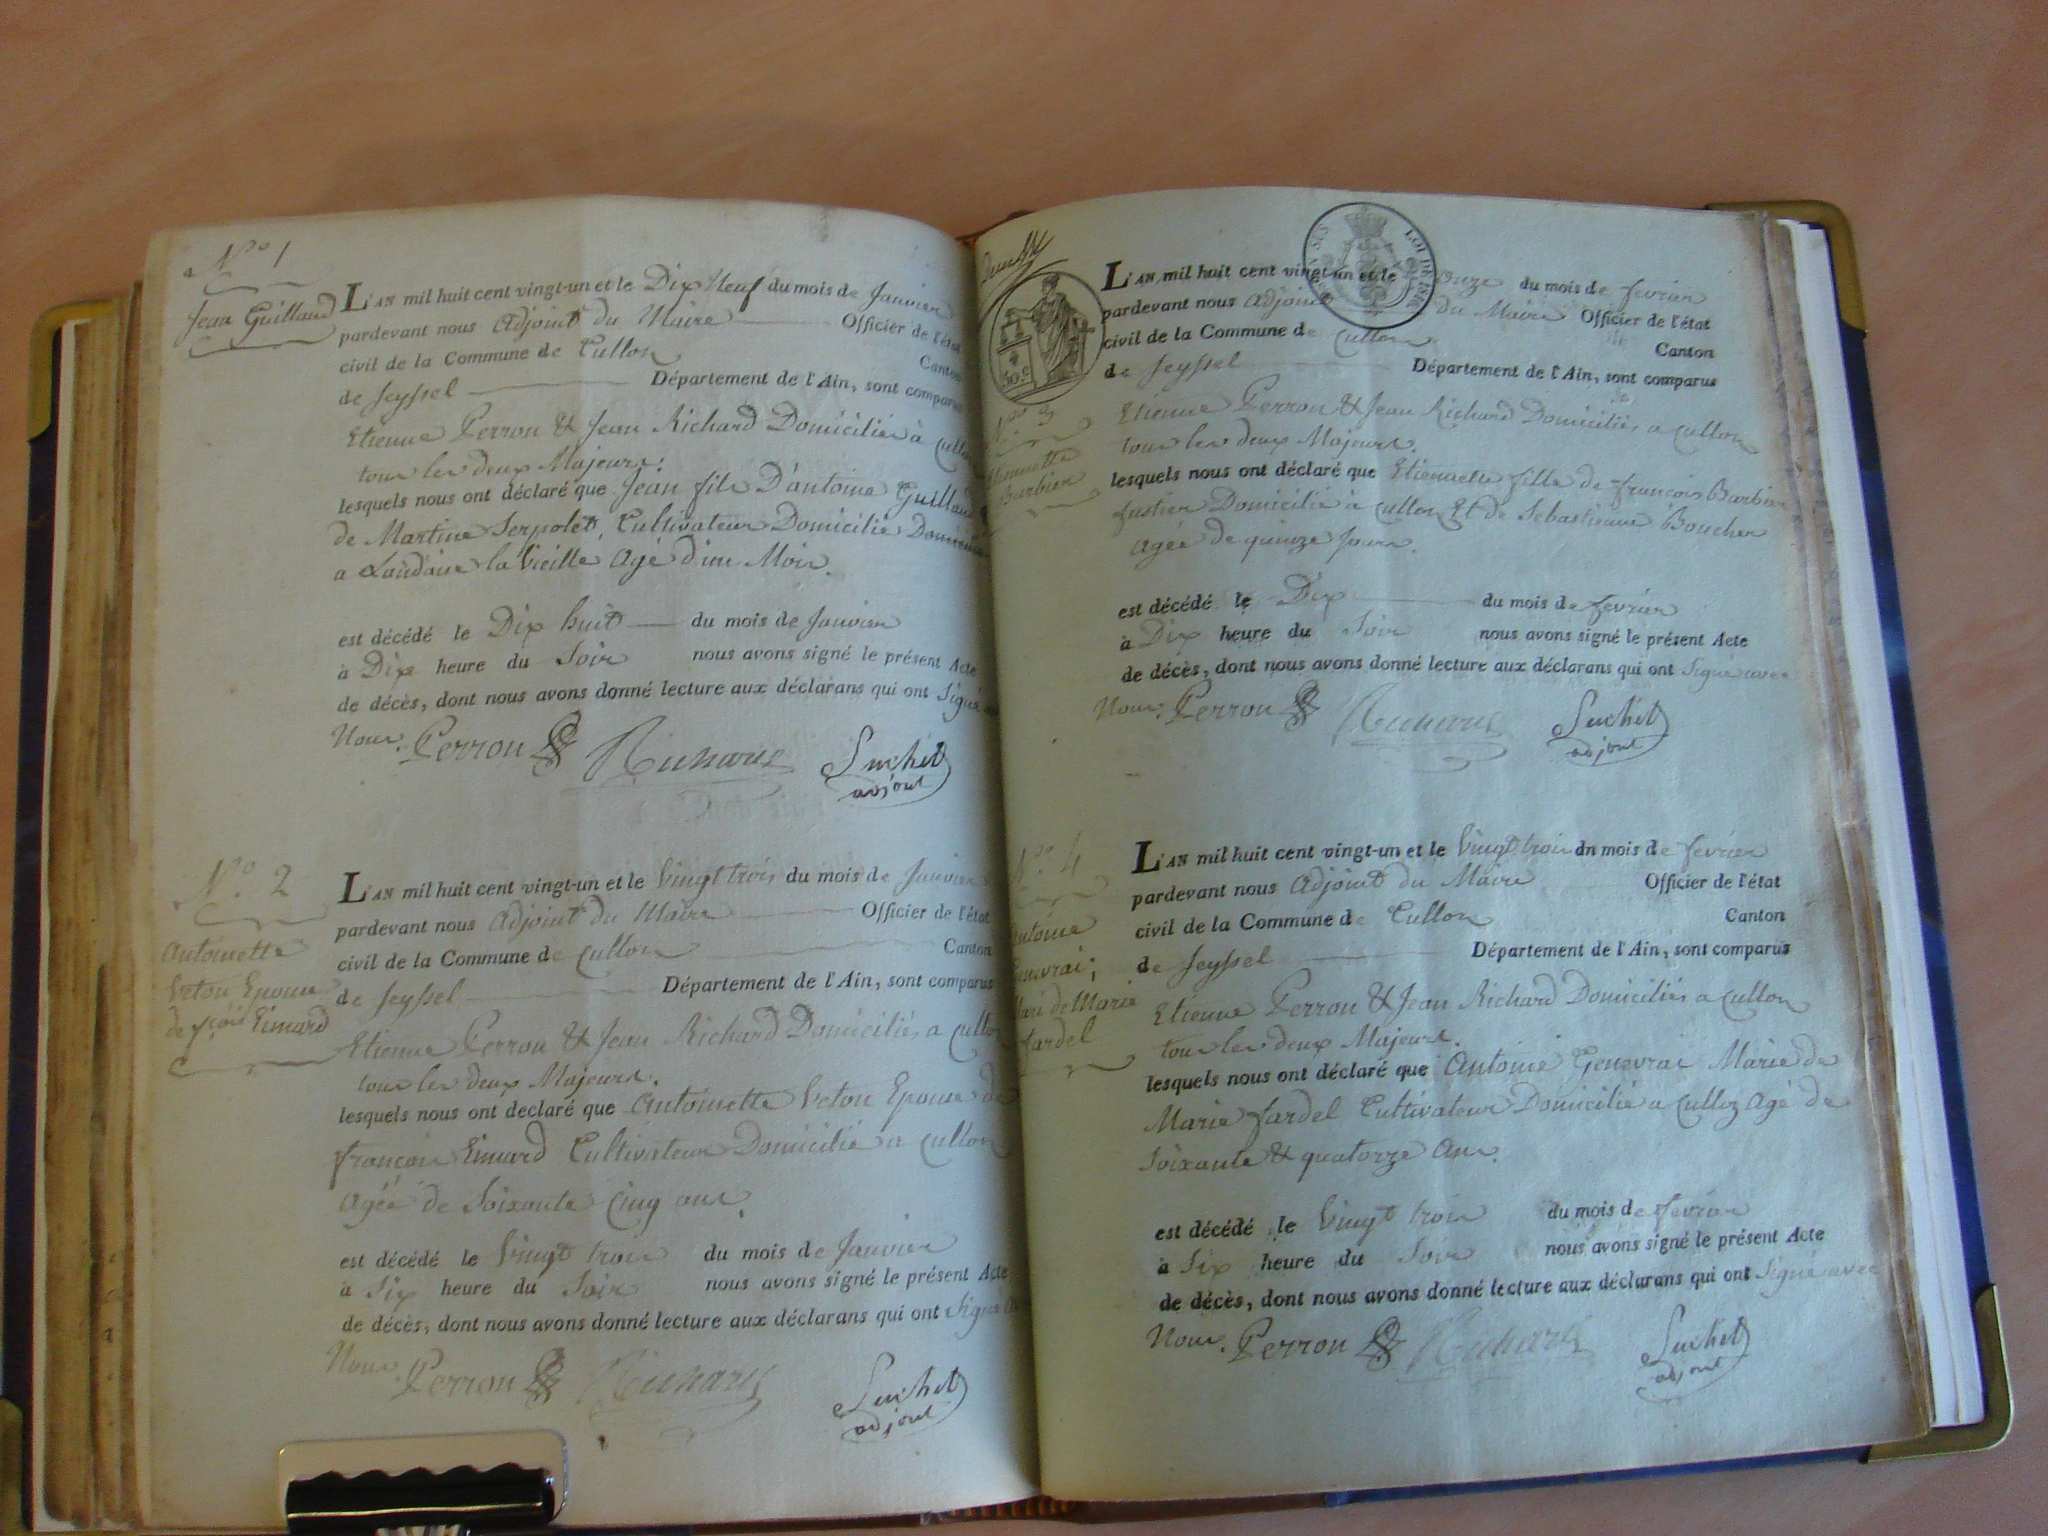 N.o 1
Jean Guillaud
L'AN mil huit cent vingt-un et le Dix Neuf du mois de Janvier
pardevant nous Adjoint du Maire Officier de l'état
civil de la Commune de Culloz Canton
de Seyssel Département de l'Ain, sont comparus
Etienne Perron & Jean Richard Domiciliés à Culloz
tous les deux Majeurs.
lesquels nous ont déclaré que Jean fils D'antoine Guillaud
de Martine Serpolet, Cultivateur Domicilié
a la Vieille Agé d'un Mois.
est décédé le Dix huit du mois de Janvier
à Dix heure du Soir nous avons signé le présent Acte
de décès, dont nous avons donné lecture aux déclarans qui ont Signé
Nous. Perron Richard Suchet
adjoint
N.o 2
Antoinette
Veton Epouse
de f.çois Eimard
L'AN mil huit cent vingt-un et le Vingt trois du mois de Janvier
pardevant nous Adjoint du Maire Officier de l'état
civil de la Commune de Culloz Canton
de Seyssel Département de l'Ain, sont comparus
Etienne Perron & Jean Richard Domiciliés a Culloz
tous les deux Majeurs.
lesquels nous ont déclaré que Antoinette Veton Epouse de
françois Eimard Cultivateur Domicilié a Culloz
Agée de Soixante Cinq ans.
est décédé le Vingt trois du mois de Janvier
à Six heure du Soir nous avons signé le présent Acte
de décès, dont nous avons donné lecture aux déclarans qui ont Signé
Nous. Perron Richard Suchet
adjoint
LOI DE 1816
50.c
N.o 3
Etiennette
Barbier
L'AN mil huit cent vingt-un et le Onze du mois de fevrier
pardevant nous Adjoint du Maire Officier de l'état
civil de la Commune de Culloz Canton
de Seyssel Département de l'Ain, sont comparus
Etienne Perron & Jean Richard Domiciliés a Culloz
tous les deux Majeurs.
lesquels nous ont déclaré que Etiennette fille de françois Barbier
fustier Domicilié à Culloz Et de Sebastienne Boucher
Agée de quinze Jours.
est décédé le Dix du mois de fevrier
à Dix heure du Soir nous avons signé le présent Acte
de décès, dont nous avons donné lecture aux déclarans qui ont Signé avec
Nous. Perron Richard Suchet
adjoint
N.o 4
Antoine
Genevrai;
Mari de Marie
fardel
L'AN mil huit cent vingt-un et le Vingt trois du mois de fevrier
pardevant nous Adjoint du Maire Officier de l'état
civil de la Commune de Culloz Canton
de Seyssel Département de l'Ain, sont comparus
Etienne Perron & Jean Richard Domiciliés a Culloz
tous les deux Majeurs.
lesquels nous ont déclaré que Antoine Genevrai Marie de
Marie fardel Cultivateur Domicilié a Culloz Agé de
Soixante & quatorze Ans.
est décédé le Vingt trois du mois de fevrier
à Six heure du Soir nous avons signé le présent Acte
de décès, dont nous avons donné lecture aux déclarans qui ont Signé avec
Nous. Perron Richard Suchet
adjoint